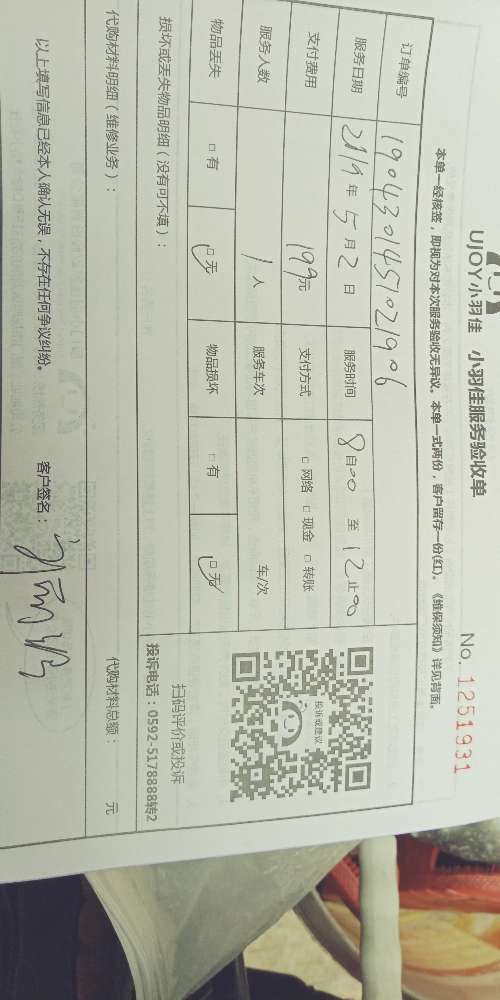 UJOY小羽佳 小羽佳服务验收单
No. 1251931
本单一经核签，即视为对本次服务验收无异议。本单一式两份，客户留存一份(红)。《维保须知》详见背面。
订单编号 1904301451021906
服务日期 2019 年 5 月 2 日 服务时间 8 自 00 至 12 止 00
支付费用 199元 支付方式 □ 网络 □ 现金 □ 转账
服务人数 1 人 服务车次 车/次
物品丢失 □ 有 □ 无 物品损坏 □ 有 □ 无
投诉或建议
扫码评价或投诉
投诉电话：0592-5178888转2
损坏或丢失物品明细（没有可不填）：
代购材料明细（维修业务）： 代购材料总额： 元
以上填写信息已经本人确认无误，不存在任何争议纠纷。 客户签名：